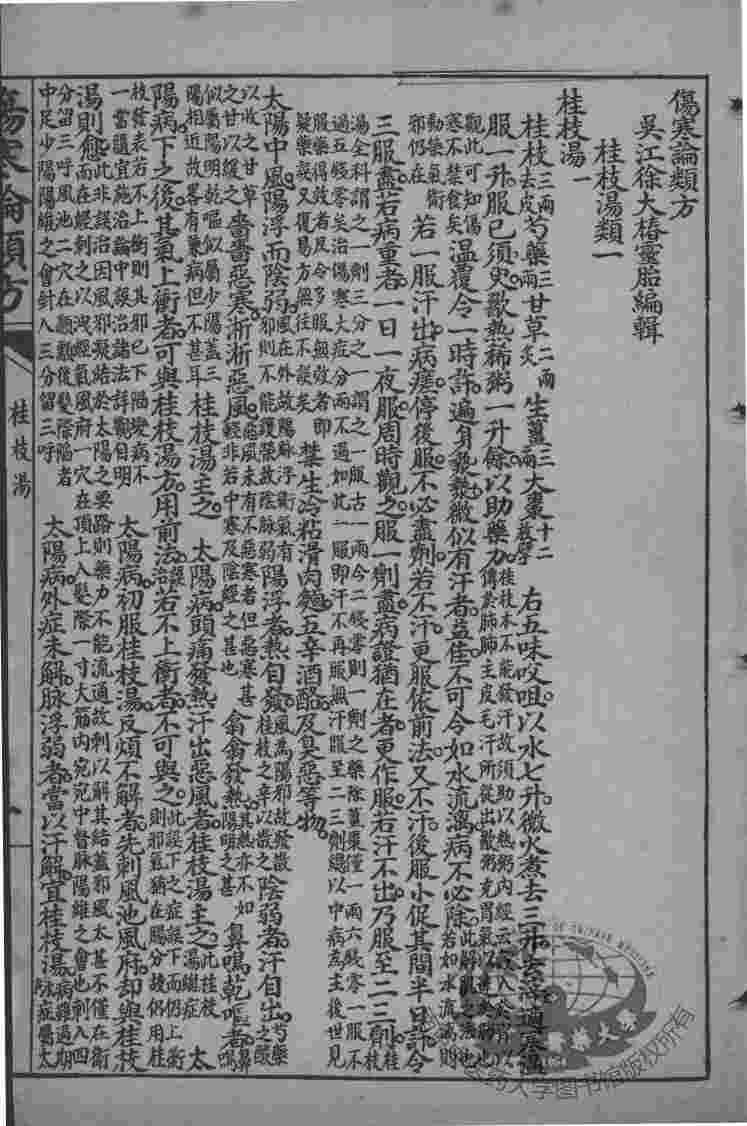 傷寒論類方
吳江徐大椿靈胎編輯
桂枝湯類一
桂枝湯一
桂枝三兩去皮芍藥三兩甘草二兩炙生薑三兩大棗十二枚擘 右五味㕮咀以水七升微火煮去三升去滓適寒溫
服一升服已須臾歠熱稀粥一升餘以助藥力桂枝本不能發汗故須助以熱粥內經云穀入於胃以傳於肺肺主皮毛汗所從出歠粥充胃氣以達於肺也
觀此可知傷寒不禁食矣溫覆令一時許遍身漐漐微似有汗者益佳不可令如水流漓病不必除此解風之法也若如水流漓則
動榮氣衛邪仍在 若一服汗出病瘥停後服不必盡劑若不汗更服依前法又不汗後服小促其間半日許令
三服盡若病重者一日一夜服周時觀之服一劑盡病證猶在者更作服若汗不出乃服至二三劑桂枝
湯全科謂之一劑三分之一謂之一服古一兩今二錢零則一劑之藥除薑棗僅一兩六錢零一服不過五錢零矣治傷寒大症分兩不過如此一服即汗不再服無汗服至二三劑總以中病為主後世見
服藥得效者反令多服無效者即疑藥誤又復易方無往不誤矣 禁生冷粘滑肉麵五辛酒酪及臭惡等物
太陽中風陽浮而陰弱風在外故陽脉浮衛氣有邪則不能護陰故陰脉弱陽浮者熱自發風為陽邪故發散桂枝之辛以散之陰弱者汗自出芍藥之酸
以收之甘草之甘以緩之嗇嗇惡寒淅淅惡風惡風未有不惡寒者但惡寒甚輕非若中寒及陰經之甚也 翕翕發熱其熱亦不如陽明之甚鼻鳴乾嘔者鼻鳴
似屬陽明乾嘔似屬少陽蓋三陽相近故略有兼病但不甚耳桂枝湯主之 太陽病頭痛發熱汗出惡風者桂枝湯主之此桂枝湯總症 太
陽病下之後其氣上衝者可與桂枝湯方用前法誤治若不上衝者不可與之此誤下之症誤下而仍上衝則邪氣猶在陽分故仍用桂
枝發表若不上衝則其邪已下陷變病不一當隨宜施治論中誤治諸法詳觀自明 太陽病初服桂枝湯反煩不解者先刺風池風府却與桂枝
湯則愈此非誤治因風邪凝結於太陽之要路則藥力不能流通故刺以解其結蓋邪風太甚不僅在衛而在經刺之以洩經氣風府一穴在頂上入髮際一寸大筋內宛宛中督脉陽維之會也刺入四
分留三呼風池二穴在顳顬後髮際陷者中足少陽陽維之會針入三分留三呼 太陽病外症未解脉浮弱者當以汗解宜桂枝湯病雖過期脉症屬太
傷寒論類方
桂枝湯
药大学图书馆版权所有